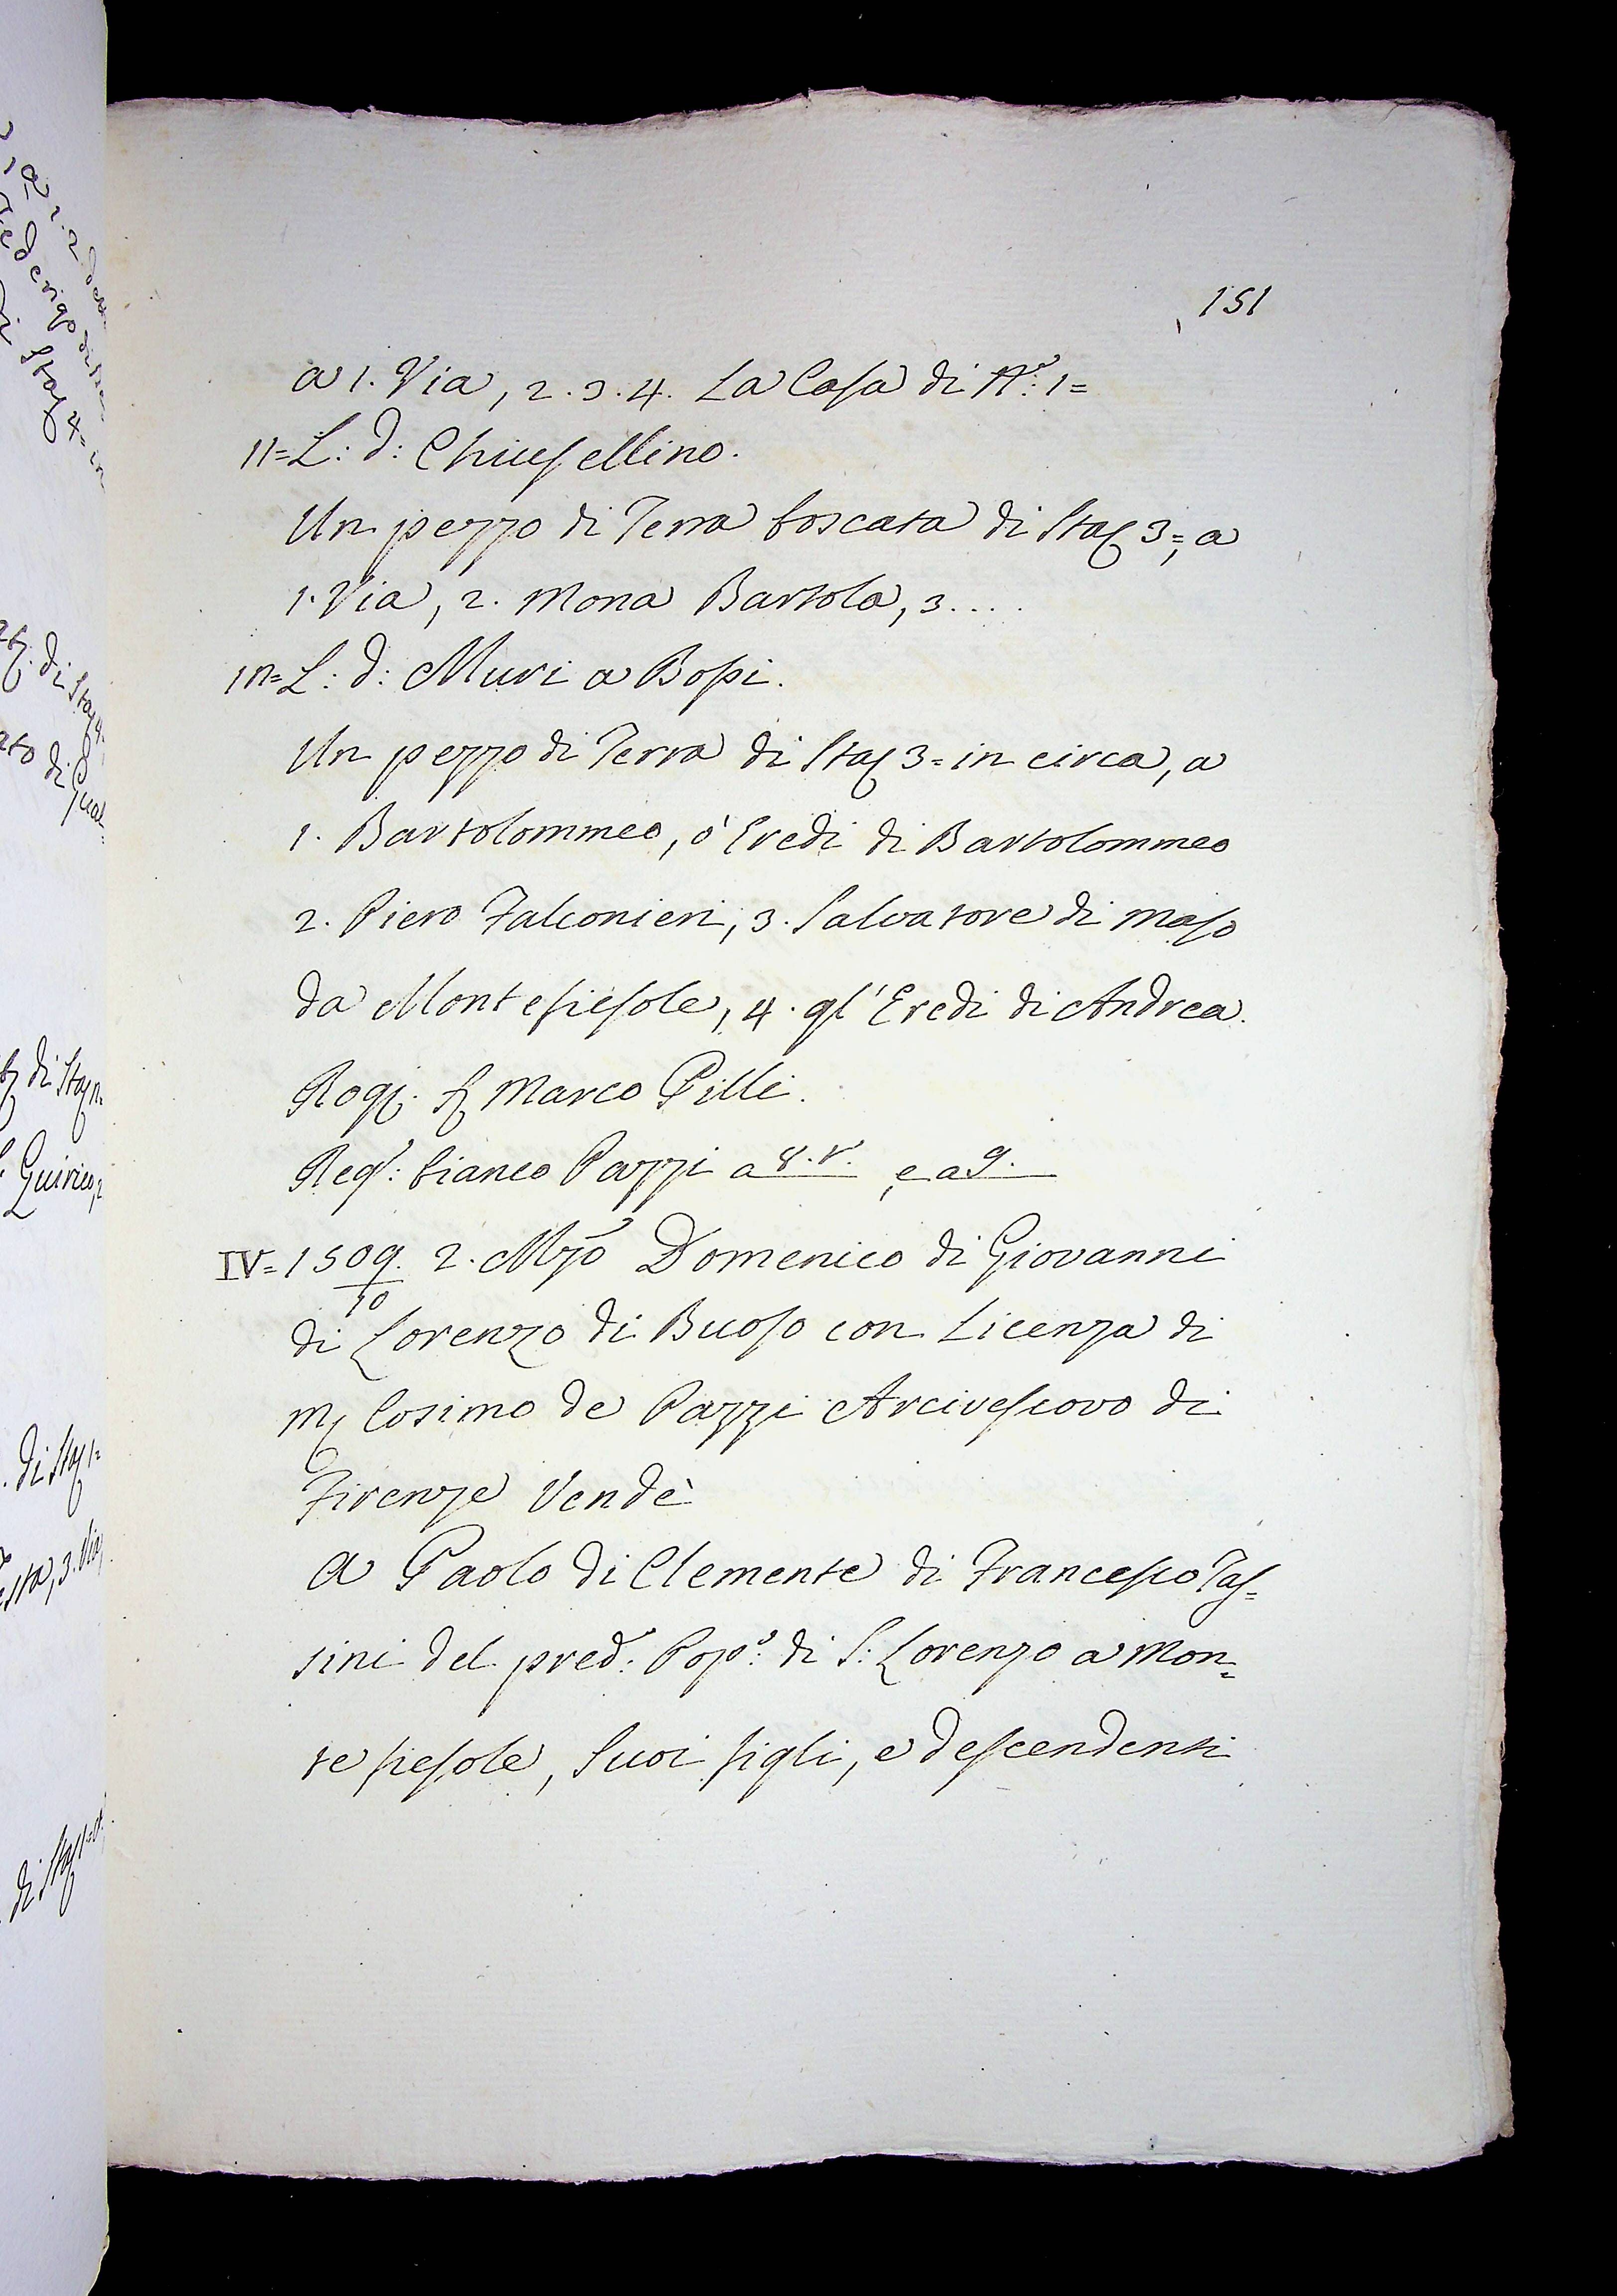 151
a 1. Via, 2. 3. 4. La Casa di N.º: 1=
11= L: d: Chiusellino.
Un pezzo di Terra boscata di Sta: 3=, a
1. Via, 2. Mona Bartola, 3....
12= L: d: Muri a Bossi.
Un pezzo di Terra di Sta: 3= in circa, a
1. Bartolommeo, ò Eredi di Bartolommeo
2. Piero Falconieri, 3. Salvatore di Maso
da Montefiesole, 4. gl' Eredi di Andrea.
Rog: Marco Pilli.
Reg.º: bianco Pazzi a 8.r. e a 9.
IV= 1509. 2. Mzo Domenico di Giovanni
10
di Lorenzo di Buoso con Licenza di
M: Cosimo de Pazzi Arcivescovo di
Firenze Vendè
A Paolo di Clemente di Francesco Tas=
sini del pred.º: Pop.º: di S: Lorenzo a Mon=
te fiesole, Suoi figli, e descendenti